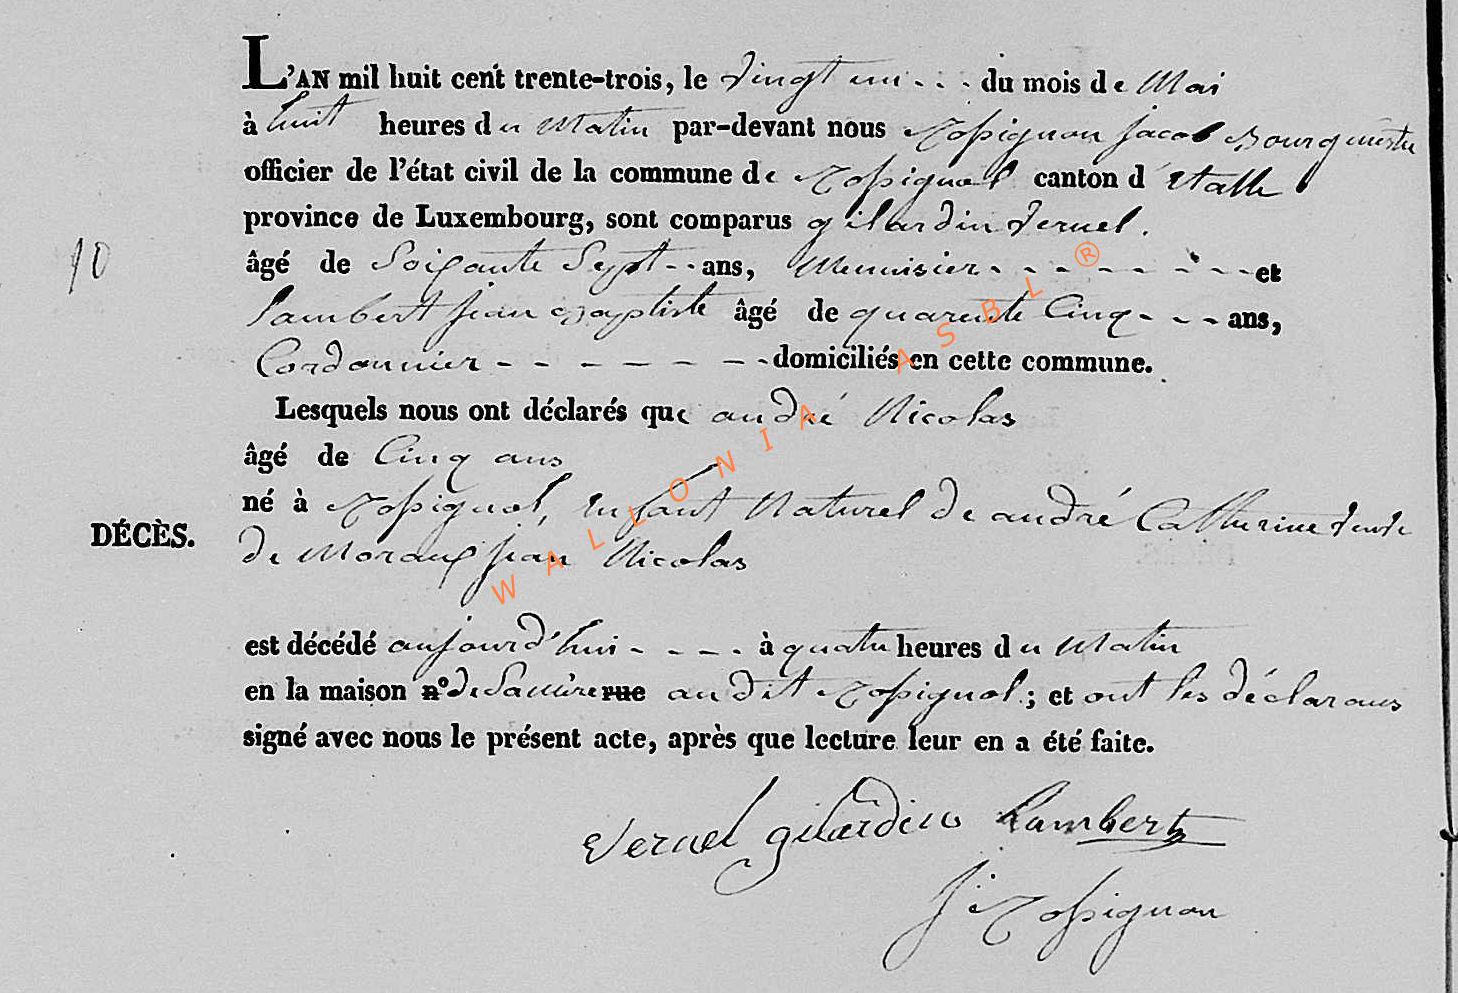 L'AN mil huit cent trente-trois, le vingt un - - - du mois de Mai
à huit heures du Matin par-devant nous Rossignon Jacob Bourguestre
officier de l'état civil de la commune de Rossignol canton d'Etalle
province de Luxembourg, sont comparus gilardin Vernel.
10
âgé de Soixante Sept - - ans, Menuisier - - - - - - - - et
Lambert Jean Baptiste âgé de quarente Cinq - - - ans,
Cordonnier - - - - - - - domiciliés en cette commune.
Lesquels nous ont déclarés que andré Nicolas
âgé de Cinq ans
né à Rossignol, Enfant Naturel de andré Catherine veuve
DÉCÈS.
de Moraux Jean Nicolas
est décédé aujourd'hui - - - - à quatre heures du Matin
en la maison n° de Sa mère rue au dit Rossignol; et ont les déclarans
signé avec nous le présent acte, après que lecture leur en a été faite.
Vernel gilardin Lambert
J. Rossignon
WALLONIA ASBL ®